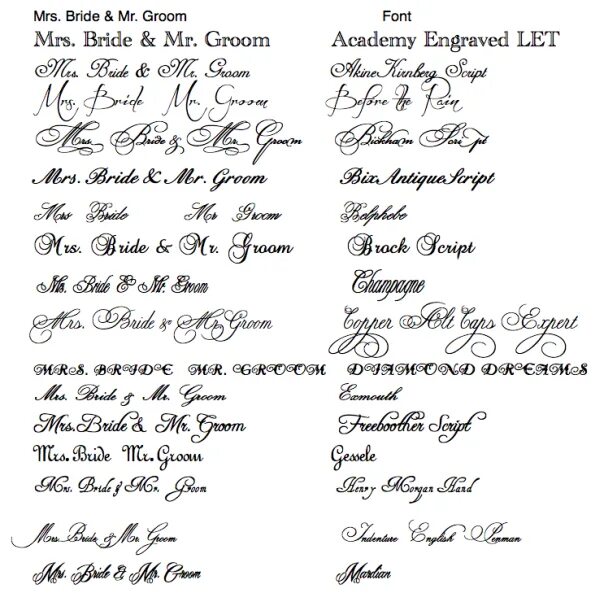 Mrs. Bride & Mr. Groom Font
Mrs. Bride & Mr. Groom Academy Engraved LET
Mrs. Bride & Mr. Groom AkineKirnberg Script
Mrs. Bride Mr. Groom Before the Rain
Mrs. Bride & Mr. Groom Bickham Script
Mrs. Bride & Mr. Groom BixAntiqueScript
Mrs Bride Mr Groom Balphebe
Mrs. Bride & Mr. Groom Brock Script
Mrs. Bride & Mr. Groom Champagne
Mrs. Bride & Mr. Groom Copper Alt Caps Expert
MRS. BRIDE MR. GROOM DIAMOND DREAMS
Mrs. Bride & Mr. Groom Exmouth
Mrs. Bride & Mr. Groom Freeboother Script
Mrs. Bride Mr. Groom Gessele
Mrs. Bride & Mr. Groom Henry Morgan Hand
Mrs. Bride & Mr. Groom Indenture English Penman
Mrs. Bride & Mr. Groom Mardian